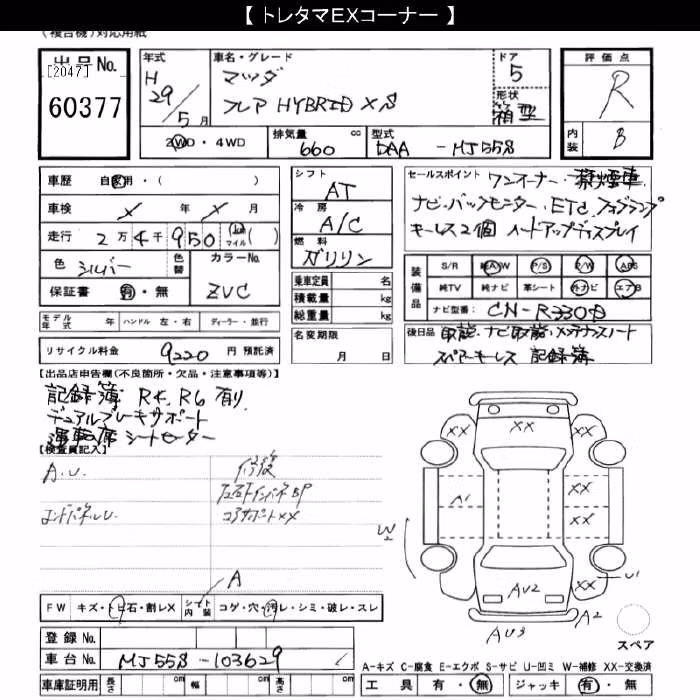 【 トレタマEXコーナー 】
(複合機)対応用紙
出品No.
[2047]
60377
年式
H 29/5 月
車名・グレード
マツダ
フレア HYBRID XS
ドア
5
形状
箱型
評価点
R
内装
B
2WD・4WD
排気量
660
cc
型式
DAA - MJ55S
車歴 自家用・( )
車検 × 年 × 月
走行 2万4千950 km マイル ( )
色 シルバー 色替
カラーNo.
ZVC
保証書 有・無
シフト
AT
冷房
A/C
燃料
ガソリン
乗車定員 名
積載量 kg
総重量 kg
名変期限
月 日
セールスポイント ワンオーナー 禁煙車
ナビ・バックモニター・ETC フォグランプ
キーレス2個 ヘッドアップディスプレイ
装備品
S/R 純A/W P/S P/W ABS
純TV 純ナビ 革シート 外ナビ エアB
ナビ型番: CN-R330B
後日品 取説・ナビ取説・メンテナンスノート
スペアキーレス 記録簿
モデル年式 年 ハンドル 左・右 ディーラー・並行
リサイクル料金 9220 円 預託済
【出品店申告欄(不良箇所・欠品・注意事項等)】
記録簿 R4、R6 有り
デュアルブレーキサポート
運転席シートヒーター
【検査員記入】
A.U.
修復
コアサポートXX
エンドパネルU
A
XX XX XX
A1 XX
XX
W2
XX
U1
AU2
A2
AU3
スペア
FW キズ・トビ石・割レX シート内装 コゲ・穴・汚レ・シミ・破レ・スレ
登録 No.
車台 No. MJ55S-103629
車庫証明用 長さ cm 幅 cm 高さ cm
A-キズ C-腐食 E-エクボ S-サビ U-凹ミ W-補修 XX-交換済
工具 有・無 ジャッキ 有・無